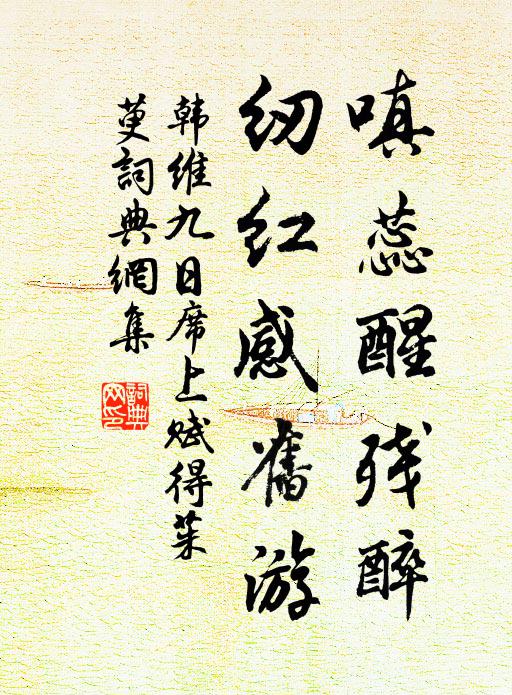 嗔蕊醒残醉
纫红感舊游
韩维九日席上赋得茱
萸詞典網集
詞典
网印